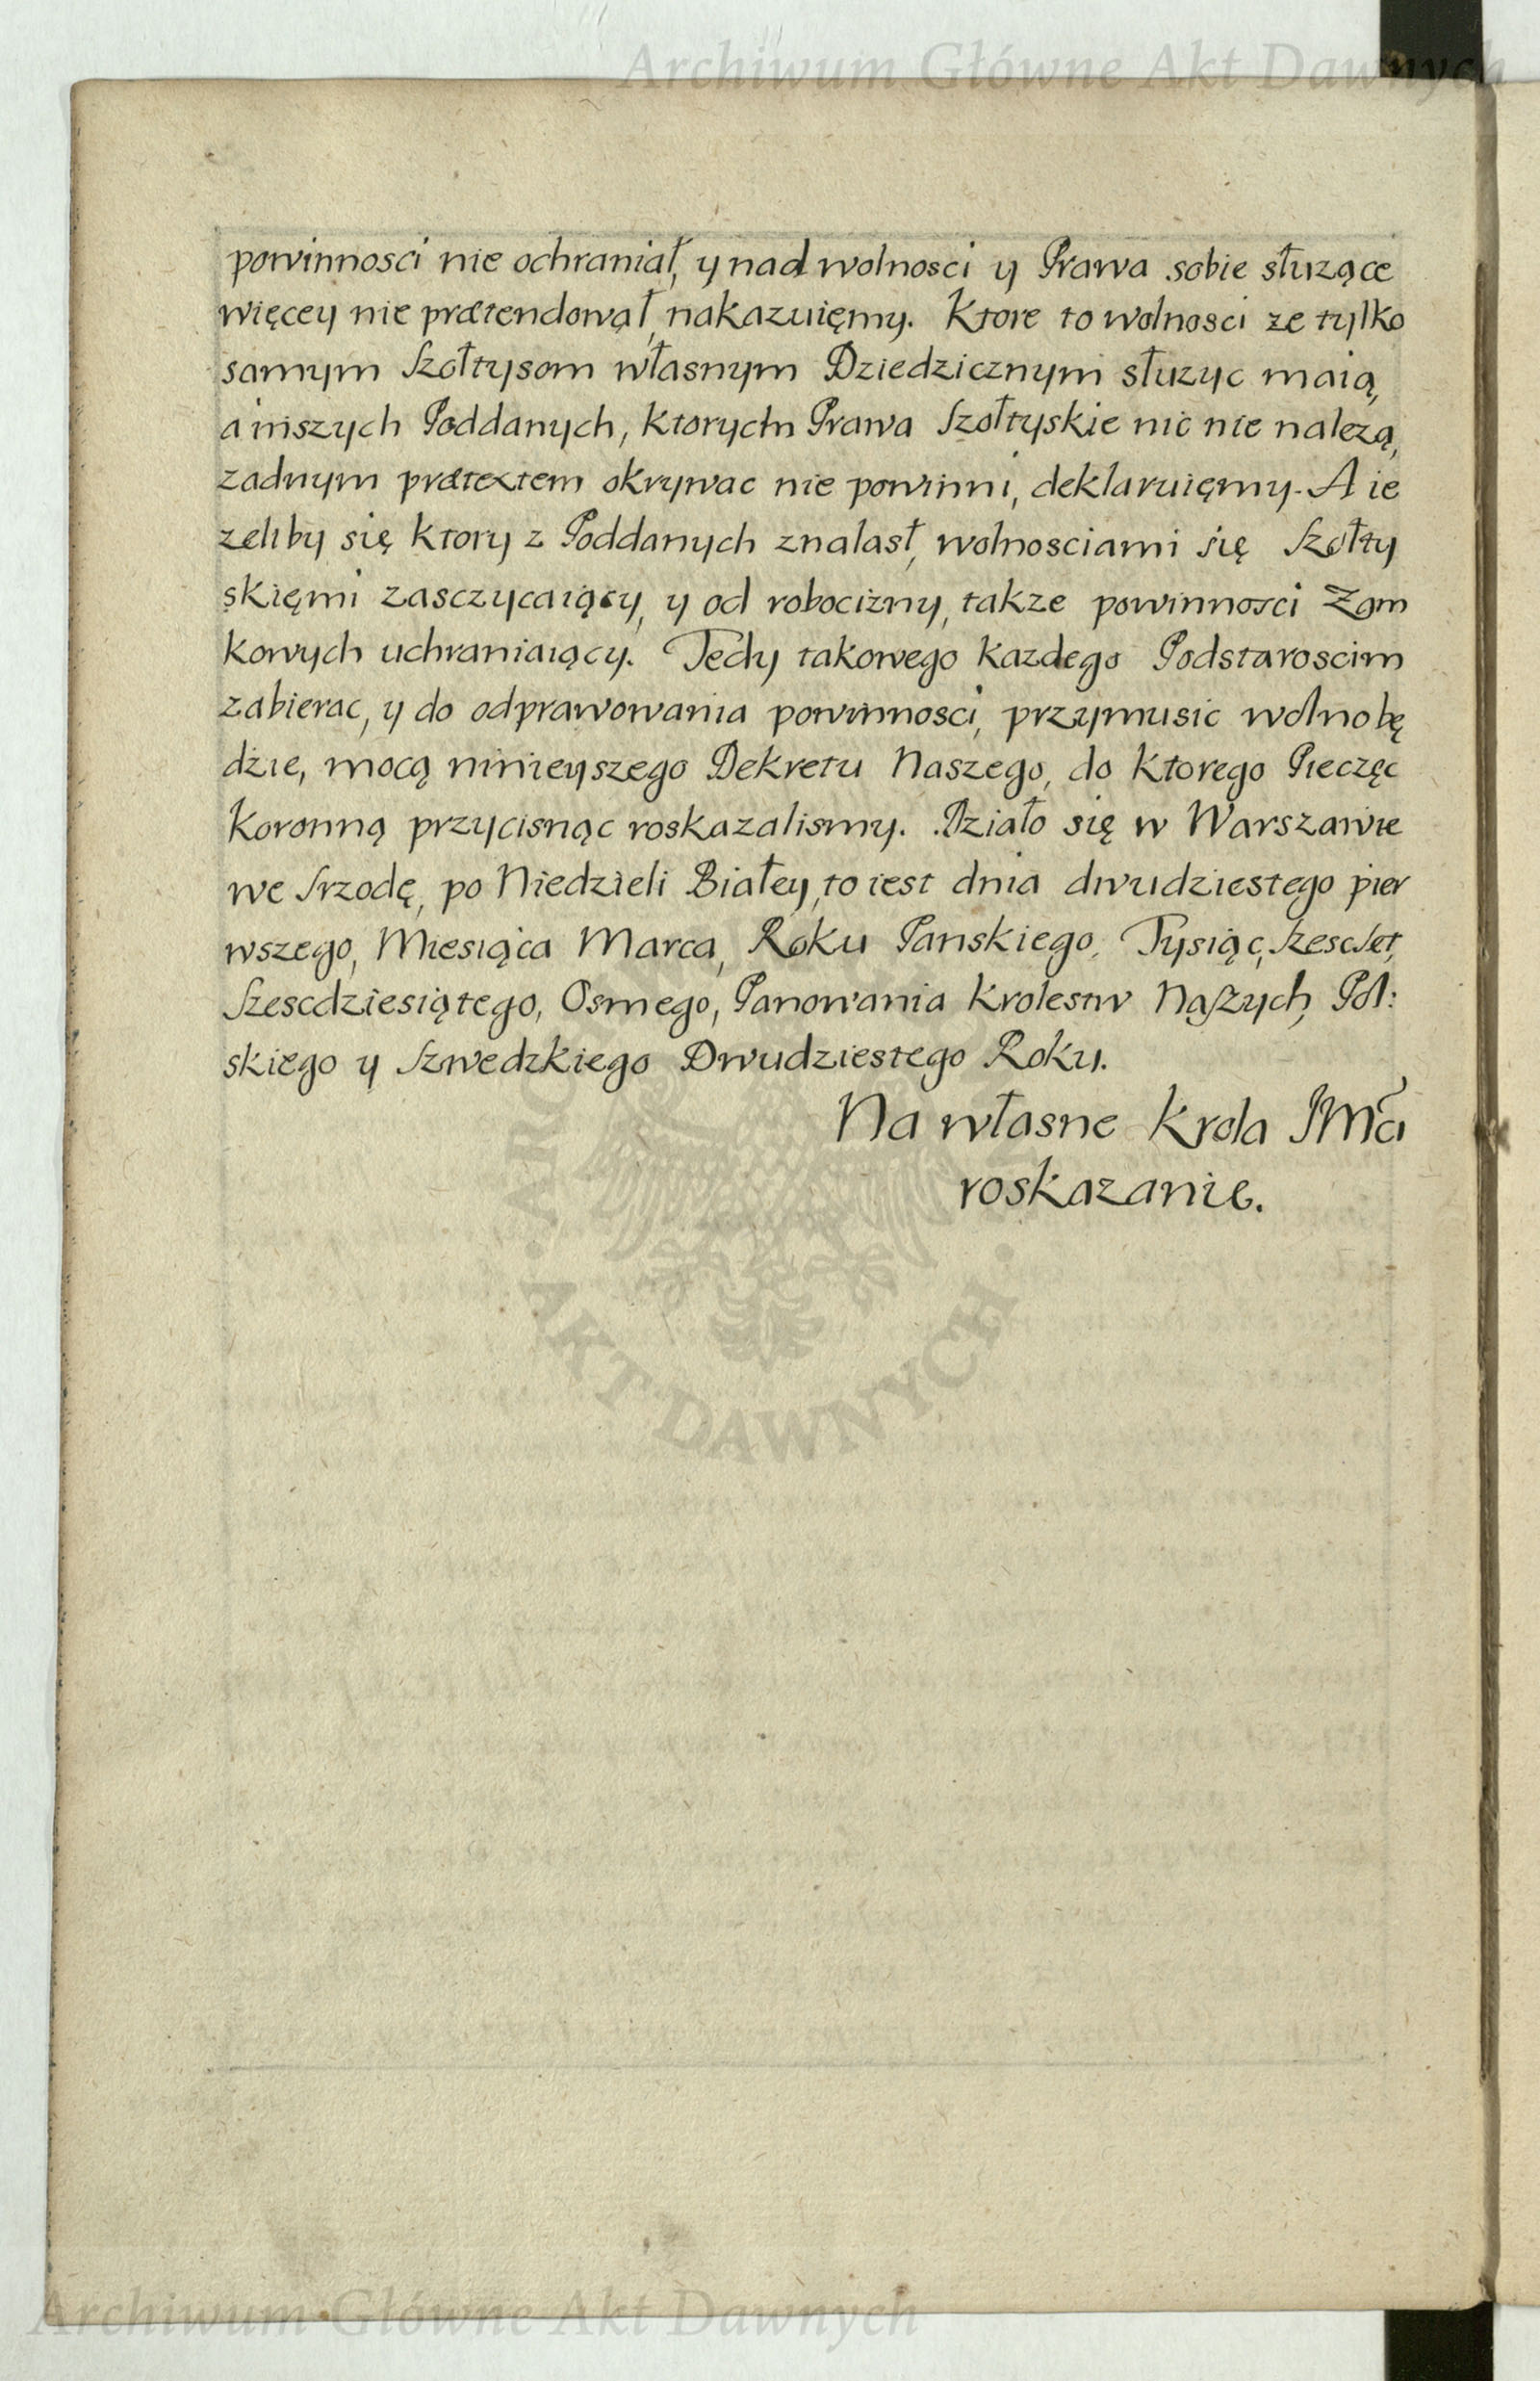 Archiwum Główne Akt Dawnych
powinnosci nie ochraniał, y nad wolnosci y Prawa sobie służące
więcey nie prætendował, nakazuięmy. Ktore to wolnosci ze tylko
samym Szołtysom własnym Dziedzicznym służyc maią,
a inszych Poddanych, ktorychn Prawa Szołtyskie nic nie nalezą,
zadnym prætextem okrywac nie powinni, deklaruięmy. A ie
zeliby się ktory z Poddanych znalasł, wolnosciami się Szołty
skięmi zasczycaiący, y od robocizny, takze powinnosci Zam
kowych uchraniaiący. Tedy takowego kazdego Podstaroscim
zabierac, y do odprawowania powinnosci, przymusic wolno bę
dzie, mocą ninieyszego Dekretu Naszego, do ktorego Pieczęc
Koronną przycisnąc roskazalismy. Działo się w Warszawie
we Srzodę, po Niedzieli Białey, to iest dnia dwudziestego pier
wszego, Miesiąca Marca, Roku Panskiego, Tysiąc, Szescset,
Szescdziesiątego, Osmego, Panowania Krolestw Naszych, Pol:
skiego y Szwedzkiego Dwudziestego Roku.
Na własne Krola JMci
roskazanie.
AKT DAWNYCH
Archiwum Główne Akt Dawnych